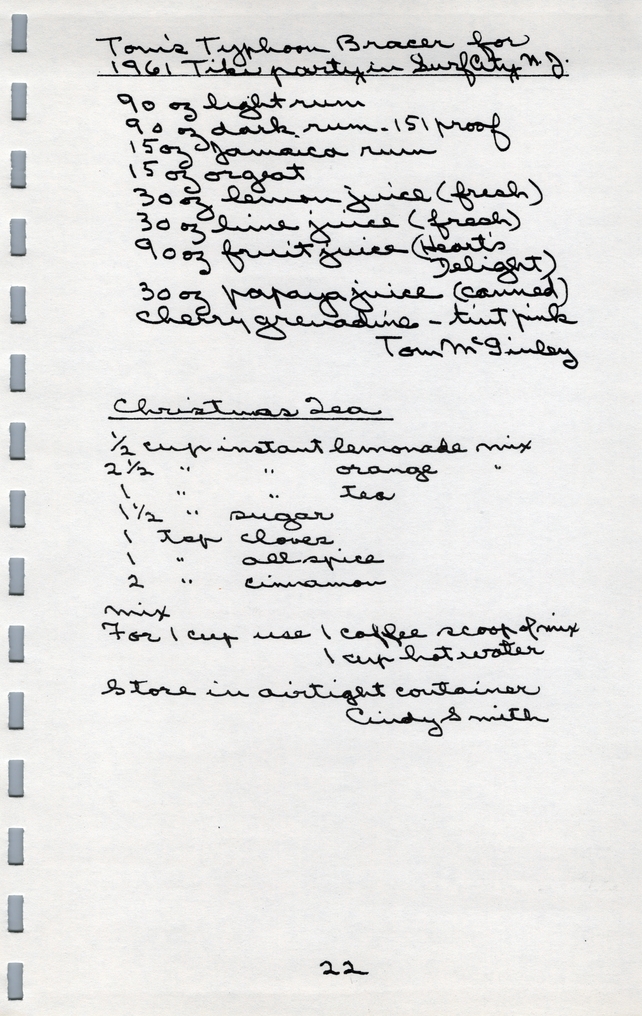 Tom's Typhoon Bracer for
1961 Tiki party in Surf City N.J.
90 oz light rum
90 oz dark rum - 151 proof
15 oz Jamaica rum
15 oz orgeat
30 oz lemon juice (fresh)
30 oz lime juice (fresh)
90 oz fruit juice (Heart's
Delight)
30 oz papaya juice (canned)
cherry grenadine - tint pink
Tom McGinley
Christmas Tea
1/2 cup instant lemonade mix
2 1/2 " " orange "
1 " " tea
1 1/2 " sugar
1 tsp cloves
1 " allspice
2 " cinnamon
mix
For 1 cup use 1 coffee scoop of mix
1 cup hot water
Store in airtight container
Cindy Smith
22